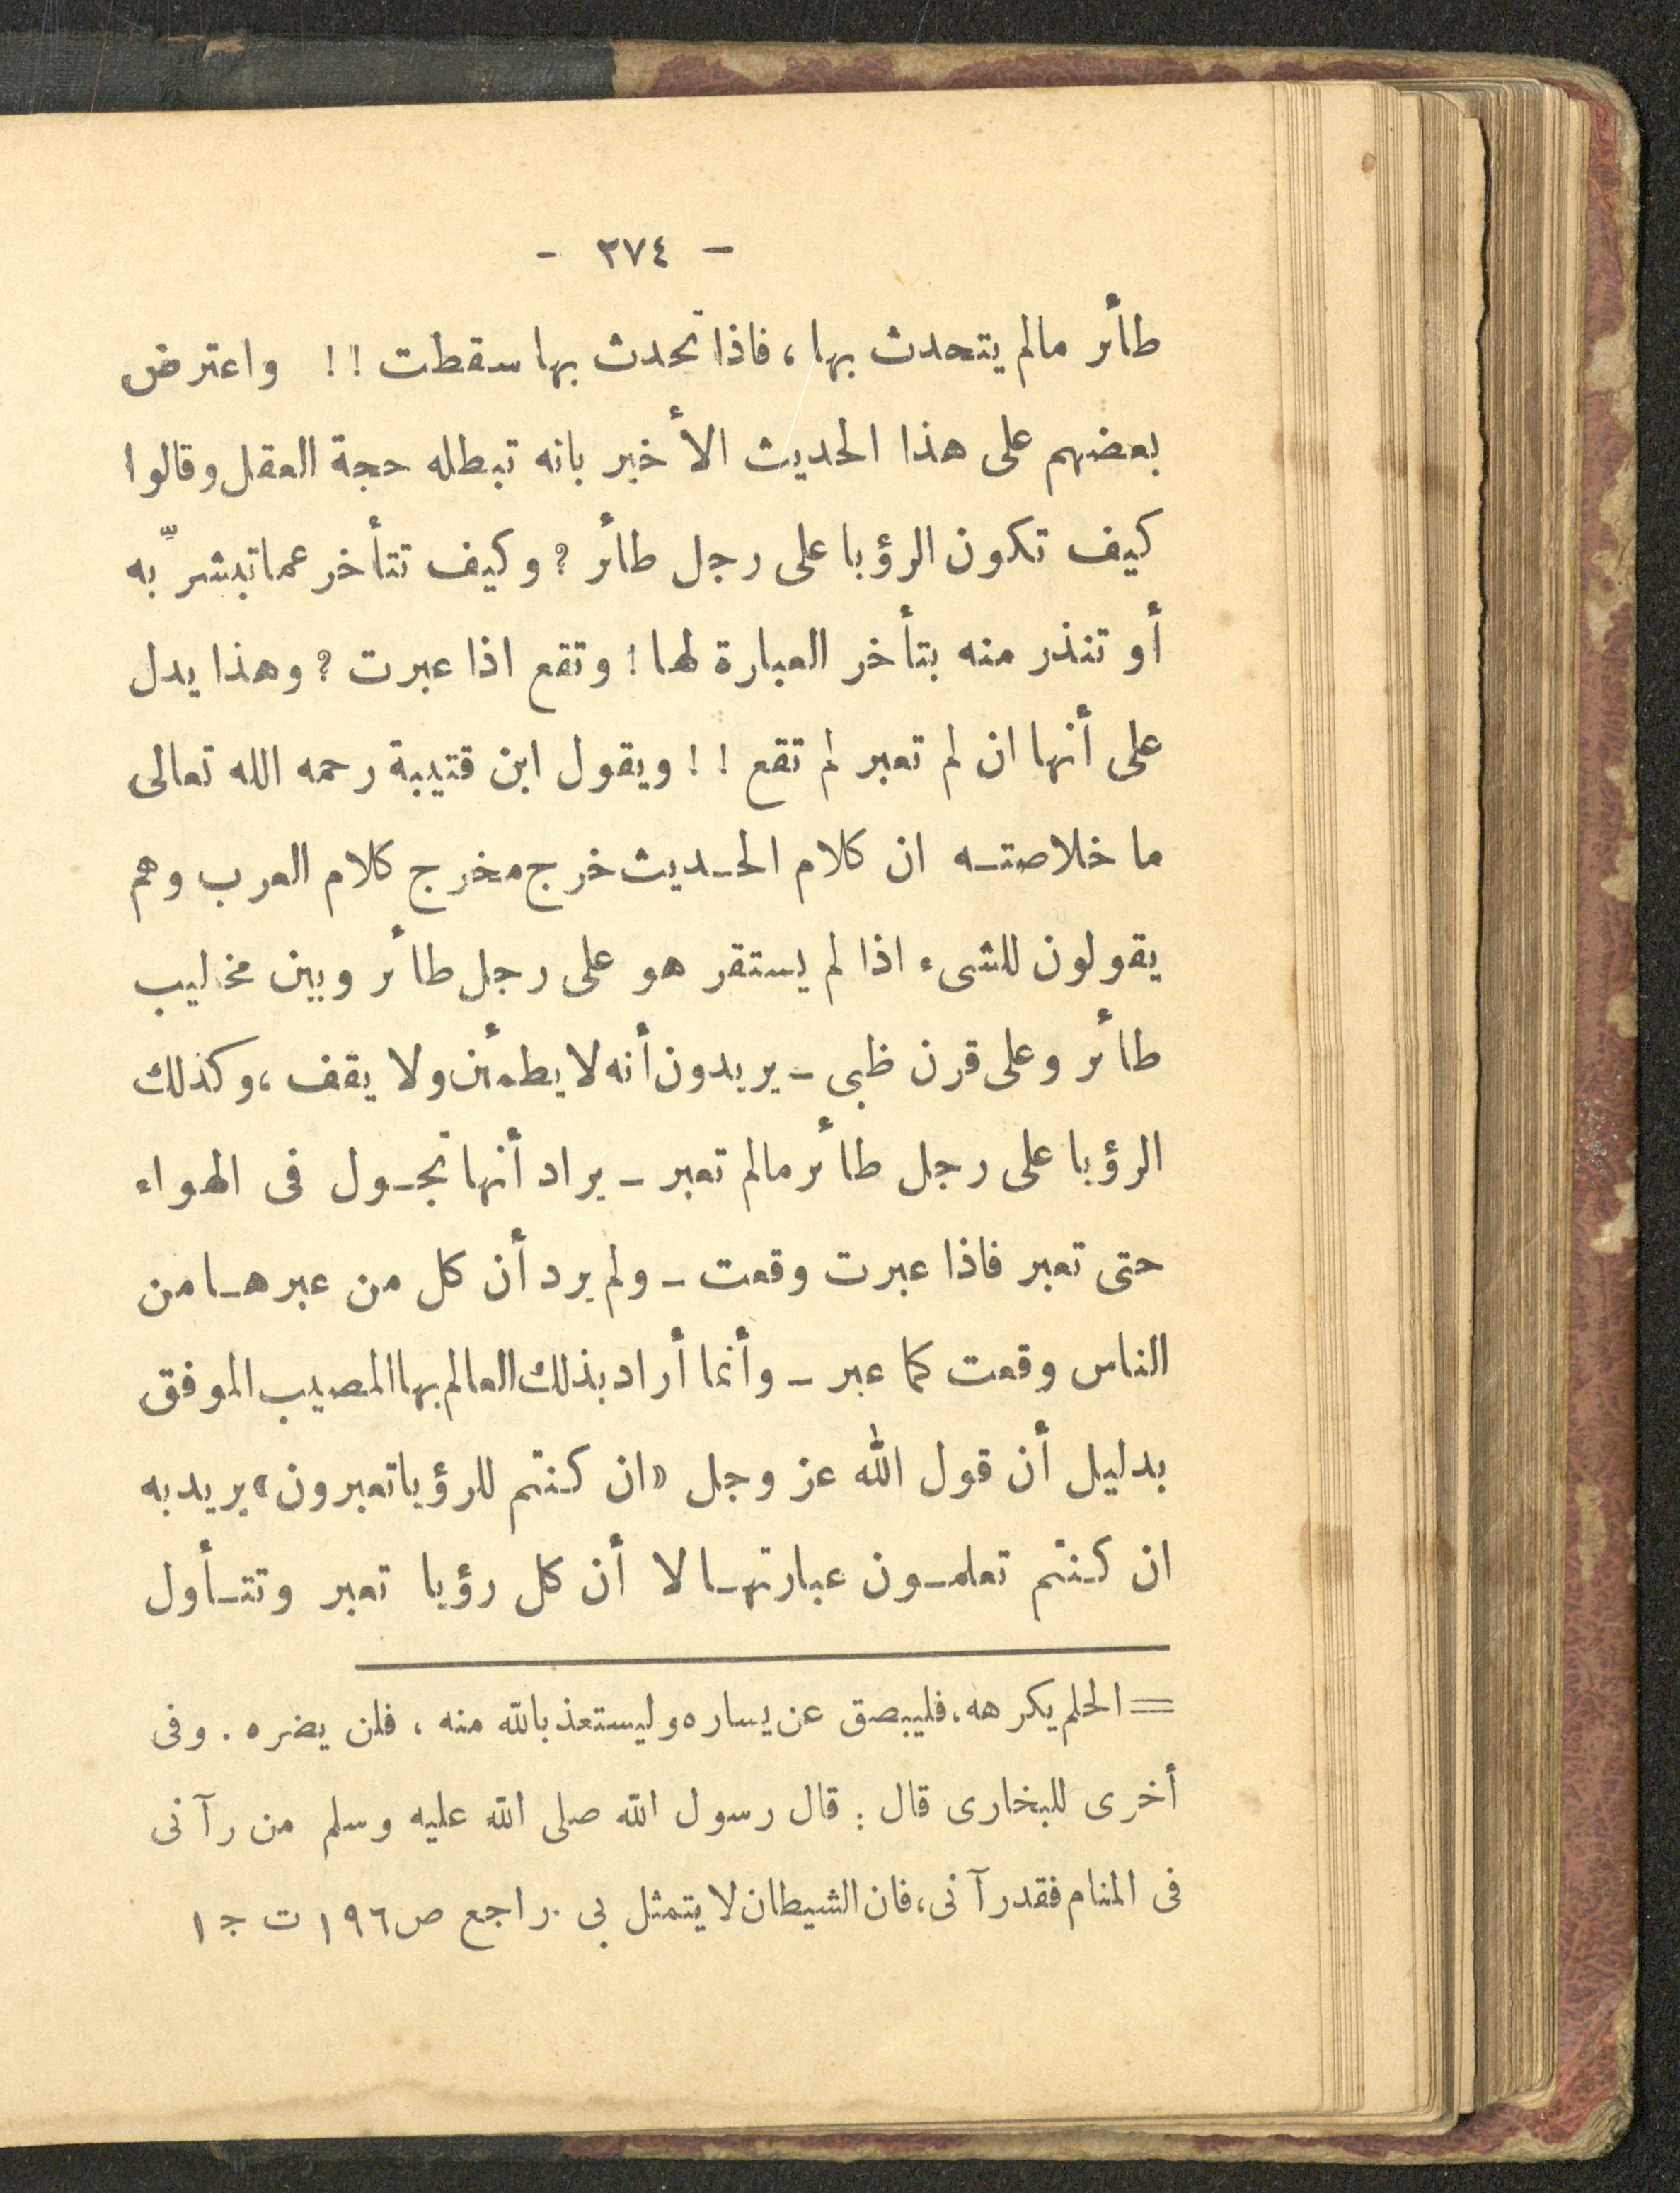 - ٢٧٤ -
طائر مالم يتحدث بها، فاذا تحدث بها سقطت !! واعترض
بعضهم على هذا الحديث الأخير بانه تبطله حجة العقل وقالوا
كيف تكون الرؤيا على رجل طائر؟ وكيف تتأخر عما تبشِّر به
أو تنذر منه بتأخر العبارة لها! وتقع اذا عبرت؟ وهذا يدل
على أنها ان لم تعبر لم تقع !! ويقول ابن قتيبة رحمه الله تعالى
ما خلاصتـه ان كلام الحـديث خرج مخرج كلام العرب وهم
يقولون للشىء اذا لم يستقر هو على رجل طائر وبين مخاليب
طائر وعلى قرن ظبى ـ يريدون أنه لا يطمئن ولا يقف، وكذلك
الرؤيا على رجل طائر مالم تعبر ـ يراد أنها تجـول فى الهواء
حتى تعبر فاذا عبرت وقعت ـ ولم يرد أن كل من عبرهـا من
الناس وقعت كما عبر ـ وأنما أراد بذلك العالم بها المصيب الموفق
بدليل أن قول الله عز وجل «ان كنتم للرؤيا تعبرون» يريد به
ان كـنتم تعلمـون عبارتهـا لا أن كل رؤيا تعبر وتتـأول
= الحلم يكرهه، فليبصق عن يساره وليستعذ بالله منه، فلن يضره. وفى
أخرى للبخارى قال : قال رسول الله صلى الله عليه وسلم من رآنى
فى المنام فقد رآنى، فان الشيطان لا يتمثل بى. راجع ص ١٩٦ ت ج ١